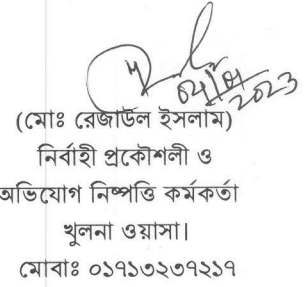 (মোঃ রেজাউল ইসলাম)
নির্বাহী প্রকৌশলী ও
অভিযোগ নিষ্পত্তি কর্মকর্তা
খুলনা ওয়াসা।
মোবাঃ ০১৭১৩২৩৭২১৭